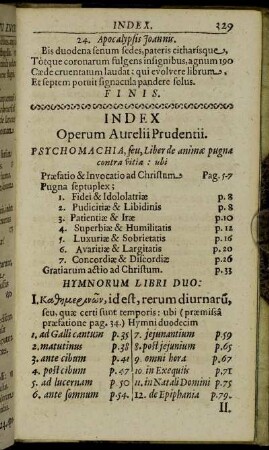 INDEX. 329
24. Apocalypsis Joannis.
Bis duodena senum sedes, pateris citharisque,
Totque coronarum fulgens insignibus, agnum 190
Cæde cruentatum laudat: qui evolvere librum,
Et septem potuit signacula pandere solus.
FINIS.
INDEX
Operum Aurelii Prudentii.
PSYCHOMACHIA, seu, Liber de animæ pugna
contra vitia: ubi
Præfatio & Invocatio ad Christum Pag. 5-7
Pugna septuplex;
1. Fidei & Idololatriæ p. 8
2. Pudicitiæ & Libidinis p. 8
3. Patientiæ & Iræ p. 10
4. Superbiæ & Humilitatis p. 12
5. Luxuriæ & Sobrietatis p. 16
6. Avaritiæ & Largitatis p. 20
7. Concordiæ & Discordiæ p. 26
Gratiarum actio ad Christum. p. 33
HYMNORUM LIBRI DUO:
I. Καθημερινῶν, id est, rerum diurnarū,
seu, quæ certi sunt temporis: ubi (præmissâ
præfatione pag. 34.) Hymni duodecim
1. ad Galli cantum p. 35 7. jejunantium p. 59
2. matutinus p. 38 8. post jejunium p. 65
3. ante cibum p. 41 9. omni hora p. 67
4. post cibum p. 47 10. in Exequiis p. 71
5. ad lucernam p. 50 11. in Natali Domini p. 75
6. ante somnum p. 54. 12. de Epiphania p. 79.
II.